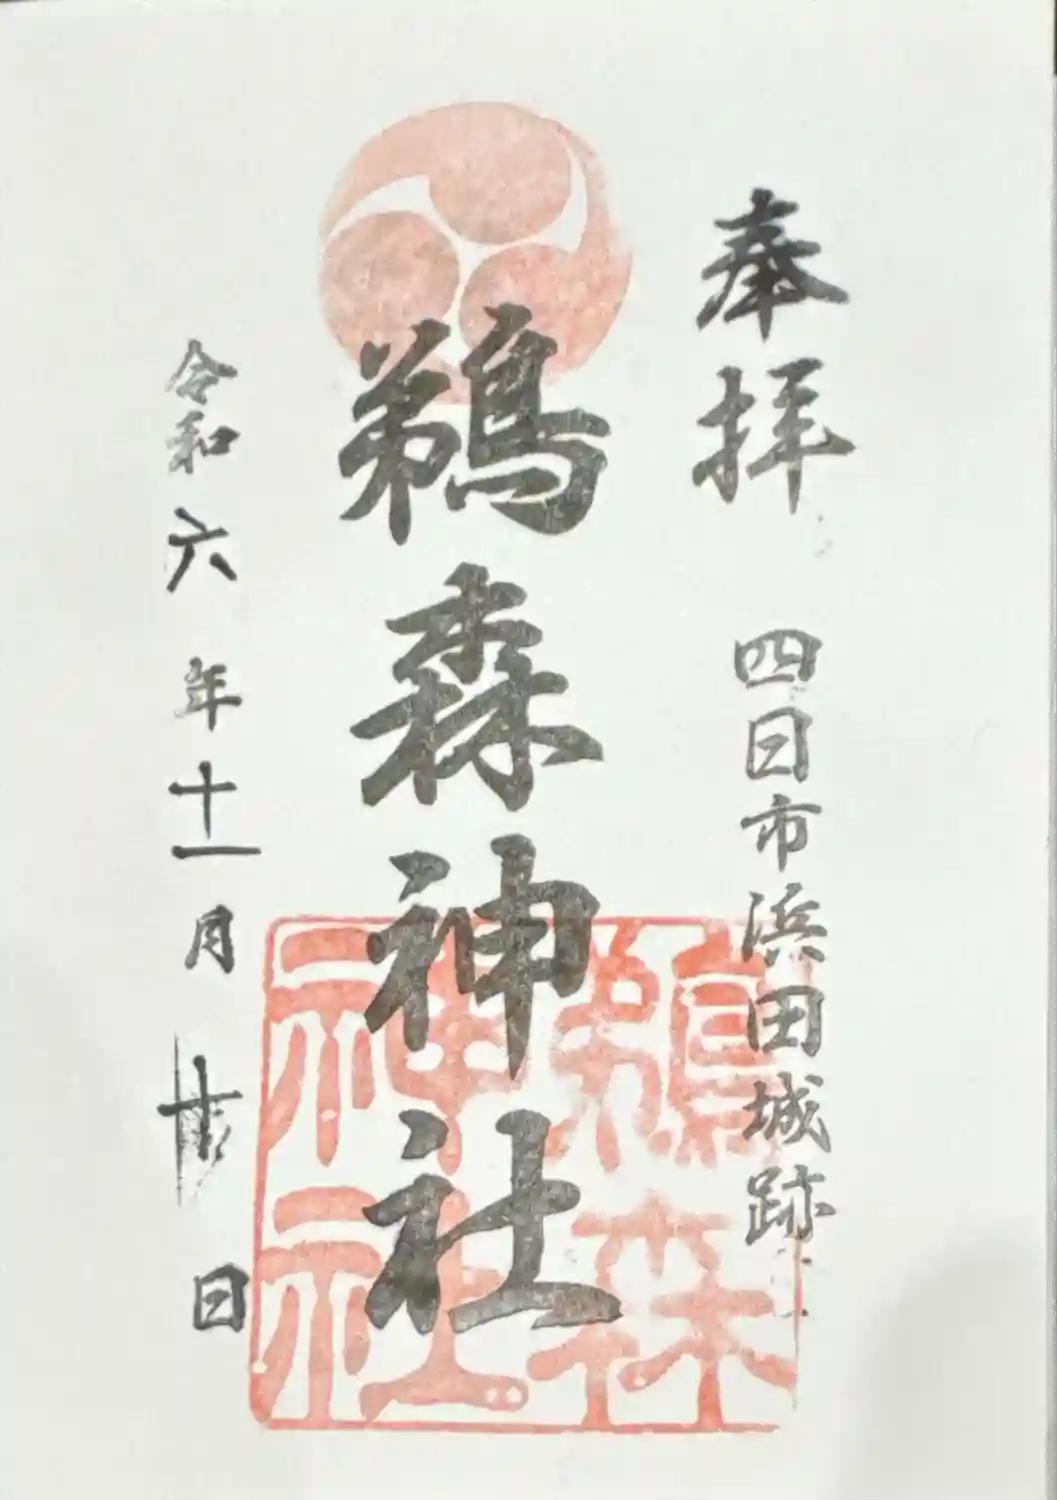 奉拝
四日市浜田城跡
鵜森神社
鵜森神社
令和六年十一月 日